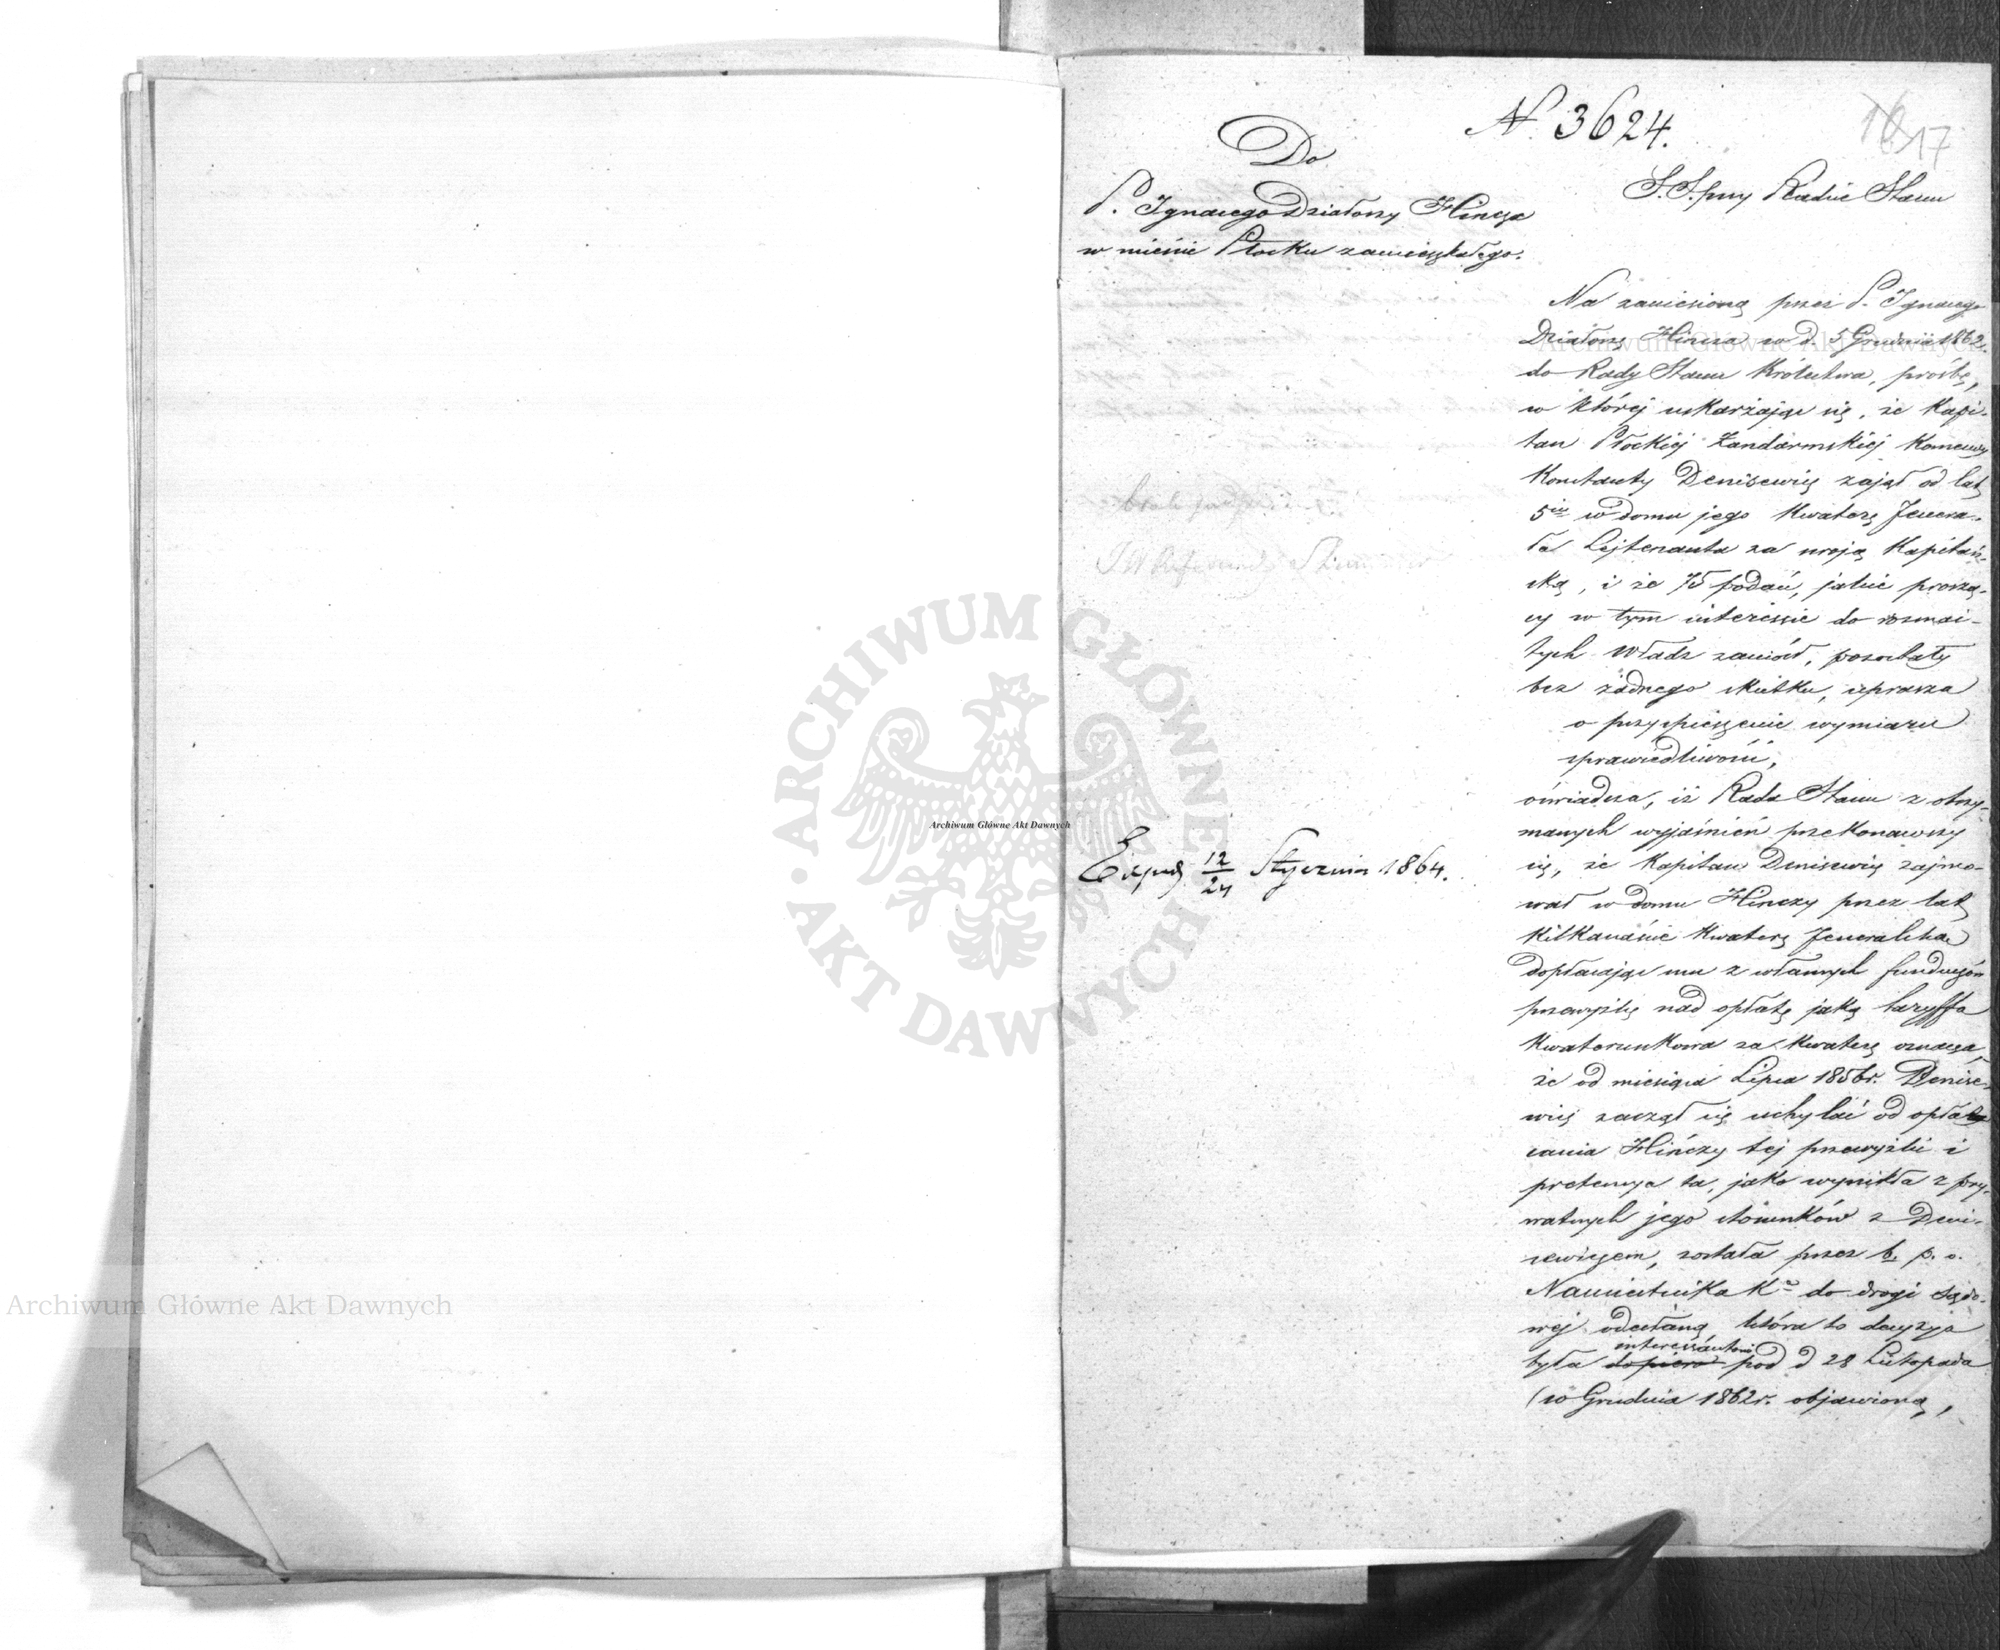 N. 3624.
17
Do
P. Ignacego Działoszy Hincza
w mieście Płocku zamieszkałego.
S. S. przy Radzie Stanu
Na zaniesioną przez P. Ignacego
Działoszę Hincza w d. 5 Grudnia 1862.
do Rady Stanu Królestwa, prośbę,
w której uskarżając się, że Kapi-
tan Płockiej Żandarmskiej Komendy
Konstanty Denisewicz zajął od lat
5ciu w domu jego Kwaterę Jenera-
ła Lejtenanta za swoją Kapitań-
ską, i że 75 podań, jakie proszą-
cy w tym interessie do rozmai-
tych Władz zaniósł, pozostały
bez żadnego skutku, uprasza
o przyspieszenie wymiaru
sprawiedliwości,
oświadcza, iż Rada Stanu z otrzy-
manych wyjaśnień przekonawszy
się, że Kapitan Denisewicz zajmo-
wał w domu Hinczy przez lat
kilkanaście Kwaterę Jeneralską
dopłacając mu z własnych funduszów
przewyżkę nad opłatę jaką taryffa
Kwaterunkowa za Kwaterę oznacza,
że od miesiąca Lipca 1856 r. Denise-
wicz zaczął się uchylać od opła-
cania Hińczy tej przewyżki i
pretensya ta, jako wynikła z pry-
watnych jego stosunków z Deni-
sewiczem, została przez b. p. o.
Namiestnika K. do drogi sądo-
wej odesłaną, która to decyzya
interessantowi
była dopiero pod d 28 Listopada
(10 Grudnia 1862 r. objawioną,
Exped 12/24 Stycznia 1864.
Archiwum Główne Akt Dawnych
Archiwum Główne Akt Dawnych
Archiwum Główne Akt Dawnych
ARCHIWUM GŁÓWNE
AKT DAWNYCH